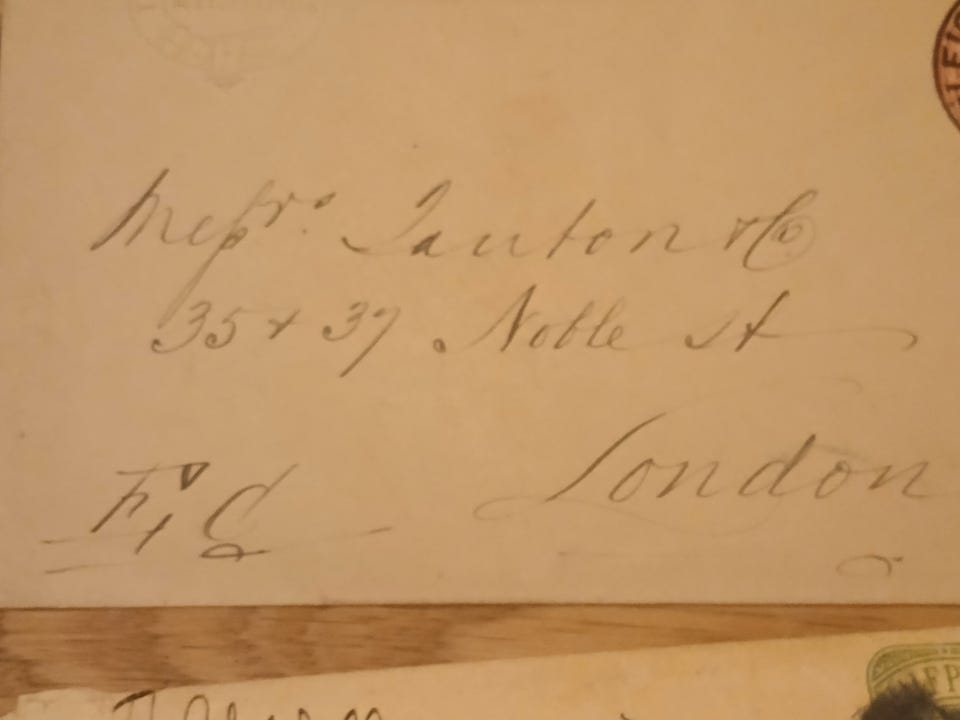 Messrs. Tauton & Co
35 & 37 Noble St
London
E, C